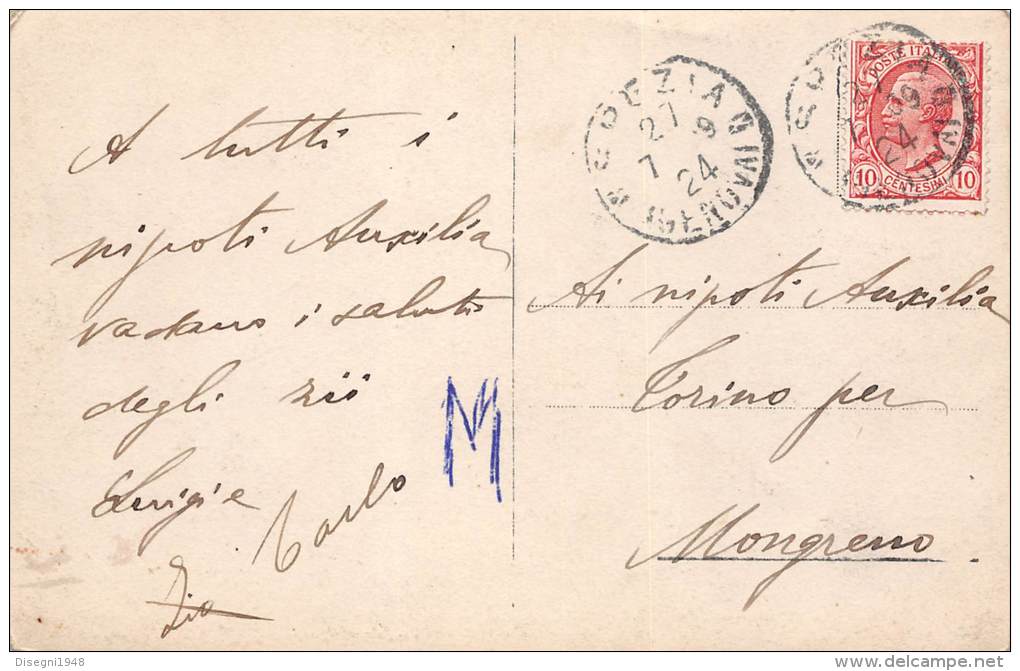 A tutti i
nipoti Auxilia
vadano i saluti
degli zii
Luigi e
Carlo
Zio
M
SPEZIA
27 9
24
POSTE ITAL
10 CENTESIMI 10
Ai nipoti Auxilia
Torino per
Mongreno
Disegni1948
delcampe.net